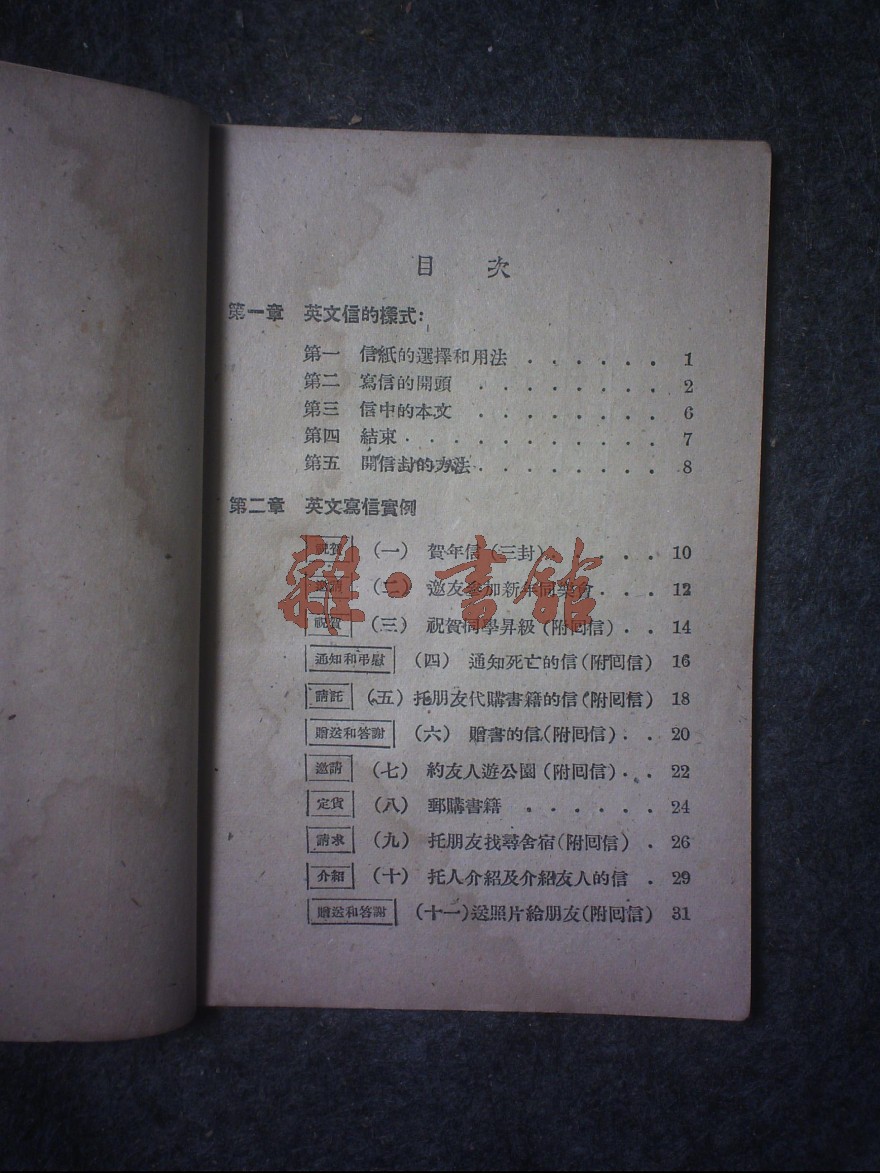 目 次
第一章 英文信的樣式:
第一 信紙的選擇和用法 . . . . . . 1
第二 寫信的開頭 . . . . . . . . 2
第三 信中的本文 . . . . . . . . 6
第四 結束. . . . . . . . . . . 7
第五 開信封的方法. . . . . . . . 8
第二章 英文寫信實例
祝賀 (一) 賀年信(三封). . . . . 10
邀請 (二) 邀友參加新年同樂會. . . 12
祝賀 (三) 祝賀同學昇級(附回信). . 14
通知和弔慰 (四) 通知死亡的信(附回信) 16
請託 (五) 托朋友代購書籍的信(附回信) 18
贈送和答謝 (六) 贈書的信(附回信). . 20
邀請 (七) 約友人遊公園(附回信). . 22
定貨 (八) 郵購書籍 . . . . . . 24
請求 (九) 托朋友找尋舍宿(附回信) . 26
介紹 (十) 托人介紹及介紹友人的信 . 29
贈送和答謝 (十一)送照片給朋友(附回信) 31
雜·書館